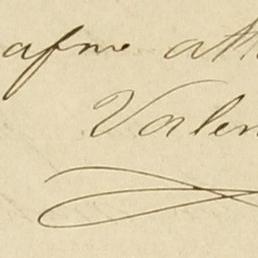 afmo att
Valen